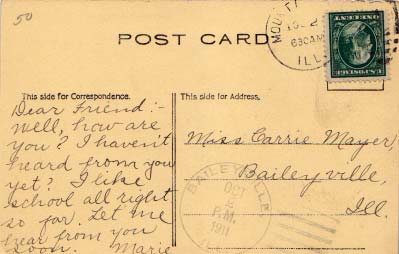 50
MOUNT
OCT 2
630AM
ILL.
POST CARD
U.S. POSTAGE
ONE CENT
This side for Correspondence.
This side for Address.
Dear Friend:-
well, how are
you? I haven't
heard from you
yet? I like
school all right
so far. Let me
hear from you
soon. Marie
Miss Carrie Mayer
Baileyville,
Ill.
BAILEYVILLE
OCT
2
P.M.
1911